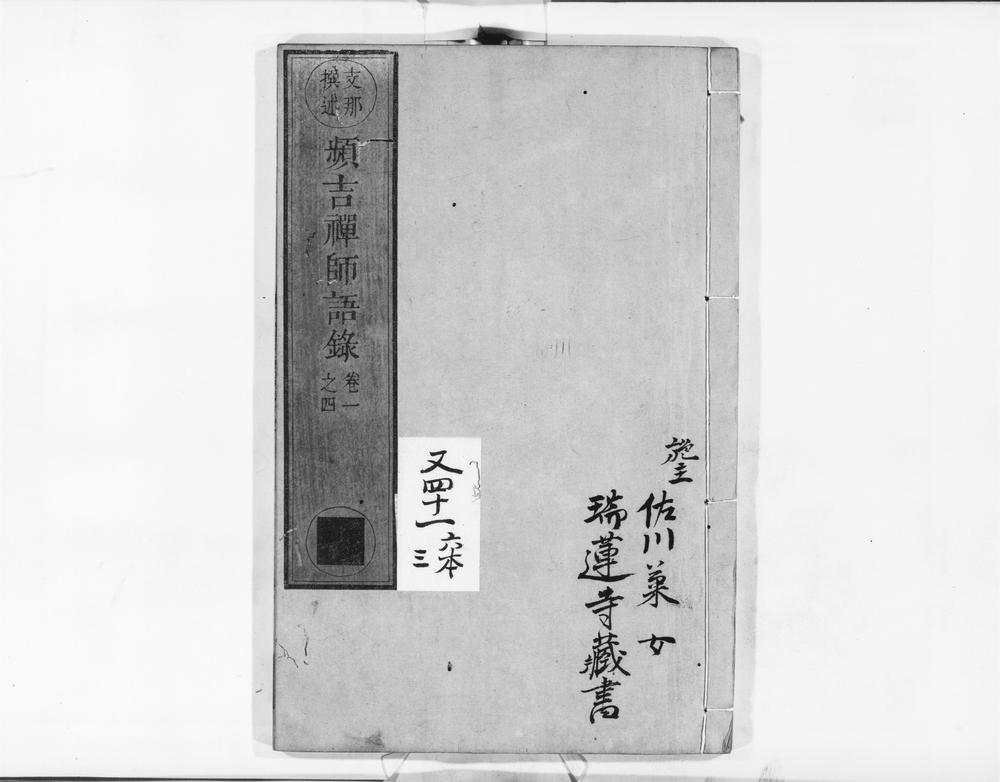 支那
撰述
頻吉禪師語錄
卷一
之四
又四十一
六本
三
施主
佐川菓女
瑞蓮寺藏書